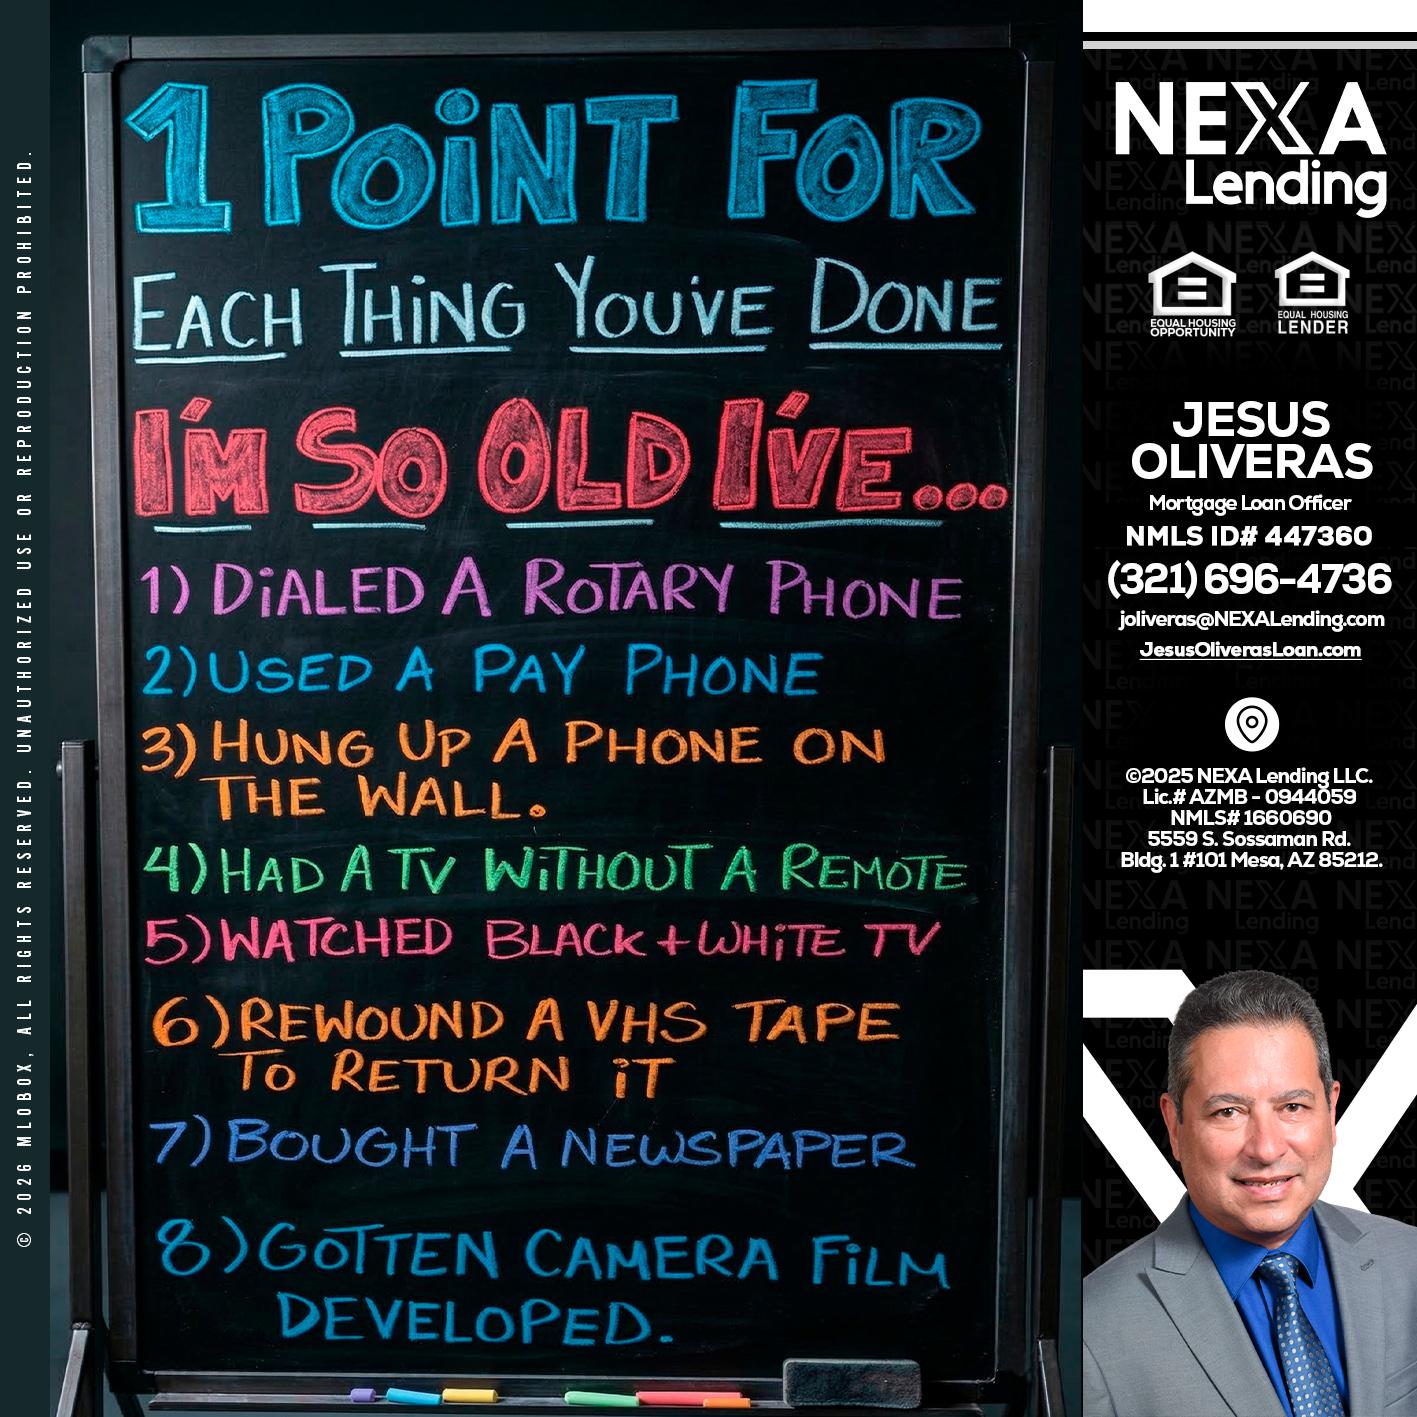 © 2026 MLOBOX, ALL RIGHTS RESERVED. UNAUTHORIZED USE OR REPRODUCTION PROHIBITED.
1 POiNT FOR
EACH THiNG YOU'VE DONE
I'M SO OLD I'VE...
1) DiALED A ROTARY PHONE
2) USED A PAY PHONE
3) HUNG UP A PHONE ON
THE WALL.
4) HAD A TV WiTHOUT A REMOTE
5) WATCHED BLACK + WHiTE TV
6) REWOUND A VHS TAPE
TO RETURN iT
7) BOUGHT A NEWSPAPER
8) GOTTEN CAMERA FiLM
DEVELOPED.
NEXA
Lending
EQUAL HOUSING
OPPORTUNITY
EQUAL HOUSING
LENDER
JESUS
OLIVERAS
Mortgage Loan Officer
NMLS ID# 447360
(321) 696-4736
joliveras@NEXALending.com
JesusOliverasLoan.com
©2025 NEXA Lending LLC.
Lic.# AZMB - 0944059
NMLS# 1660690
5559 S. Sossaman Rd.
Bldg. 1 #101 Mesa, AZ 85212.